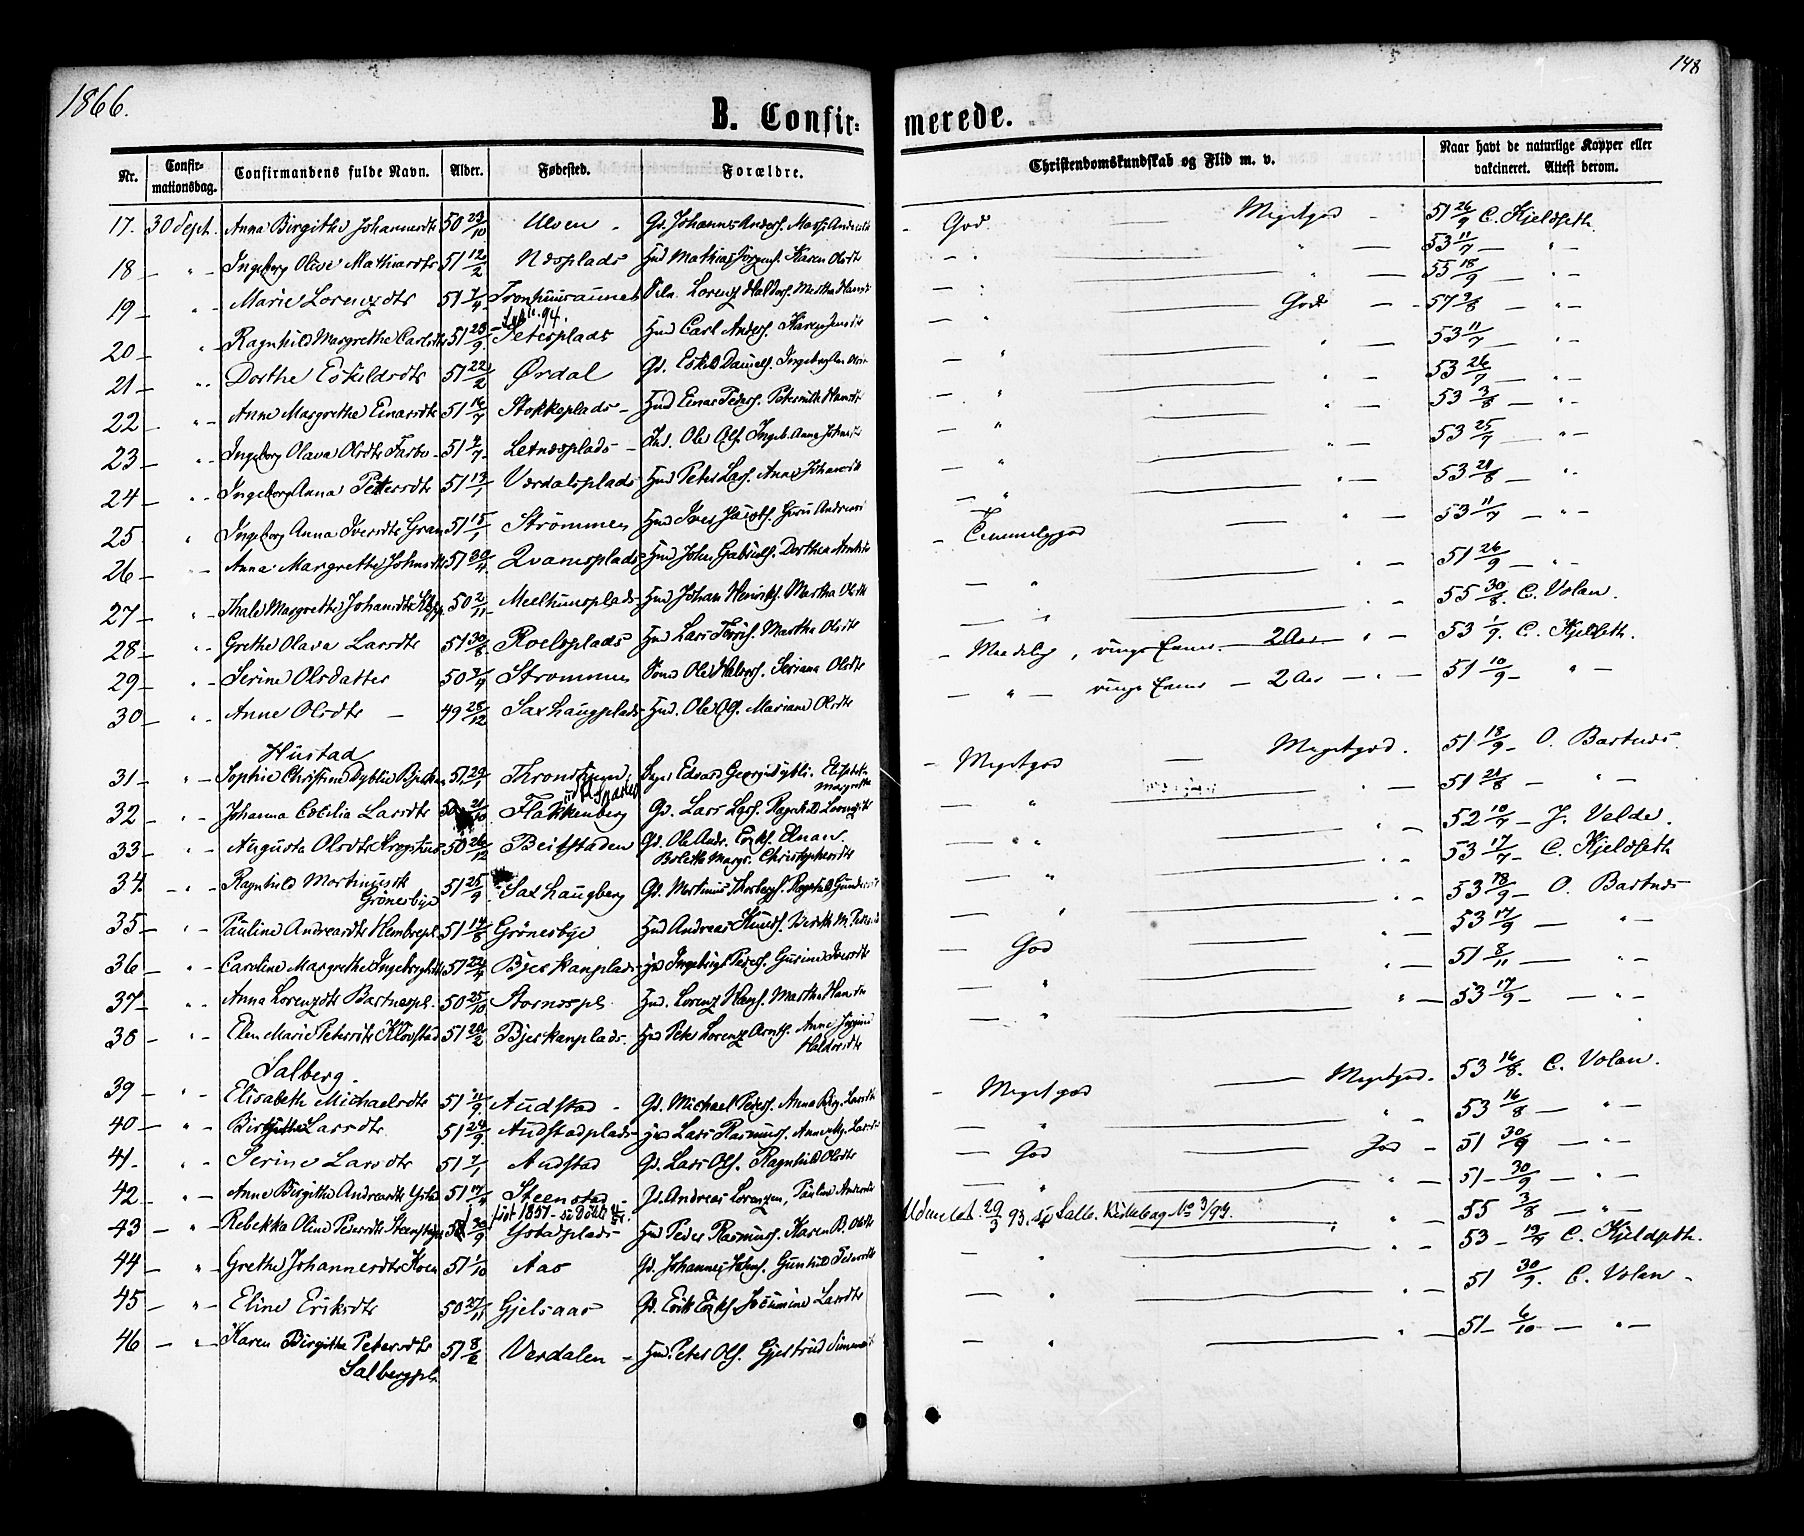 1866.
148
B. Confir-
merede.
Nr. Confir-mationsdag. Confirmandens fulde Navn. Alder. Fødested. Forældre. Christendomskundskab og Flid m. v. Naar havt de naturlige Kopper eller vakcineret. Attest derom.
17. 30 Sept. Anna Birgitha Johannesdtr 50 23/10 Ulven - Gd. Johannes Anders. - God. Megetgod - 51 26/9 C. Kjeldseth.
18 - " - Ingeborg Olise Mathiasdtr 51 12/2 Næsplads Hmd Mathias Jørgens. Karen Olsdtr - " " - 53 11/7 - " -
19 - " - Marie Lorenzdtr 51 7/4 Lorenz Haldors. Martha Hansdtr - " " - 55 18/9 - " -
20 - " Ragnhild Margrethe Carlsdtr 51 28/9 Hmd Carl Anders. Karen - " God - 57 3/8 - " -
21 - " - Dorthe Eskildsdtr 51 22/2 Ørdal Gd. Eskild Daniels. Ingeborg - " " - 53 11/7 - " -
22 - " - Anne Margrethe Einarsdtr 51 16/7 Stokkeplads - Hmd Einar Peders. - " " - 53 26/7 - " -
23 - " - Ingeborg Olava Olsdtr Farbu - 51 4/7 Letnesplads - Ind. Ole Ols. Ingeb. Anna - " " - 53 3/8 - " -
24 - " - Ingeborg Anna Petersdtr 51 13/1 Værdalsplads Hmd Peter Lars. Anna - " " - 53 25/7 - " -
25 " Ingeborg Anna Iversdtr Gran 51 15/1 Strømmen Hmd Iver Jacobs. Guru - " " - 53 28/8 - " -
26 - " - Anna Margrethe Johnsdtr 51 30/4 Qvamsplads Hmd John Gabriels. Dorthea - Temmeliggod " - 53 11/7 - " -
27 - " - Thale Margrethe Johansdtr 50 2/11 Meelhuusplads Hmd Johan Henriks. Martha Olsdtr - " " - 51 26/9 - " -
28 - " - Grethe Olava Larsdtr 51 30/8 Roelsplads Hmd Lars Martha Olsdtr - " " - 55 30/8. C. Volan.
29 - " - Serine Olsdatter 50 9/4 Strømmen Ole Halvors. Seriana Olsdtr - Maadelig, ringe Evner - 2 Aar - " - 53 1/9. C. Kjeldseth.
30 - " - Anne Olsdtr - 49 25/12 Saxhaugplads Hmd. Ole Ols. Mariane Olsdtr - " - ringe Evner - 2 Aar - " - 51 10/9 - " -
Hustad
31 - " - Sophie Christine Dyblie 51 29/1 Thronhjem Edvard Georg Dybli. Elisabeth Margretha - Megetgod - Megetgod. 51 18/9 - O. Bartnes
32 - " - Johanna Cecilia Larsdtr 50 21/10 Flakkenberg Gd. Lars Lars. Ragnhild Lorenzdtr " " - 51 21/8 - " -
33 - " - Augusta Olsdtr 50 26/12 Beitstaden Gd. Ole Andr. Boletta Margr. Christophersdtr - " " " - 52 10/7 - J. Velde.
34 - " - Ragnhild Martinusdtr Grønesbye 51 25/9 Saxhaugberg Gd. Martinus Ragnhild Gundersdtr - " " - 53 17/7 - C. Kjeldseth
35 - " - Pauline Andreasdtr Hembrepl. 51 14/8 Grønesbye Hmd Andreas Knuds. Bereth M. - " " - 53 18/9 - O. Bartnes
36 - " - Caroline Margrethe 51 22/4 Bjerkanplads Ingebrigt Peders. Gurine Iversdtr - God " - 53 17/9 - " -
37 - " - Anna Lorenzdtr Bartnespl. 50 25/10 Stornæspl. Hmd. Lorenz Hans. Martha - " " - 51 8/11 - " -
38 - " - Elen Marie Petersdtr Klovstad 51 20/2 Bjerkanplads. Hmd Peter Lorenz Arnts. Anna Haldorsdtr - " " - 53 17/9 - " -
Salberg.
39 - " Elisabeth Michaelsdtr 51 11/9 Audstad - Gd. Michael Peders. Anna Birg. Larsdtr - Megetgod Megetgod. 53 16/8. C. Volan.
40 - " - Birgitha Larsdtr 51 24/9 Audstadplads Hmd Lars Rasmus. - " " 53 16/8 - " -
41 - " - Serine Larsdtr 51 7/1 Audstad Gd. Lars Ols. Ragnhild Olsdtr - God God - 51 30/9 - " -
42 - " - Anne Birgitha Andreasdtr Ystad 51 17/4 Steenstad Gd. Andreas Lorenzen, Pauline - " " - 51 - 30/9 - " -
født 1851 - se
43 - " - Rebekka Oline Pedersdtr 51 30/9 Ystadplads Hmd Peder Rasmus. Karen B. Olsdtr Udmeldt 29/3 93. se Kirkebog No 3/93. " " 55 3/8 - " -
44 - " - Grethe Johannesdtr 51 1/10 Aas Gd. Johannes Gunhild Pedersdtr - " " - 53 - 19/7 C. Kjeldseth.
45 - " - Eline Eriksdtr 50 27/11 Gjelsaas Gd. Erik Jocumine Larsdtr - " " - 51 30/9. C. Volan -
46 - " - Karen Birgitha Petersdtr Salbergpl. 51 8/2 Verdalen - Hmd. Peter Ols. Gjertrud - " " - 51 - 6/10 - " -